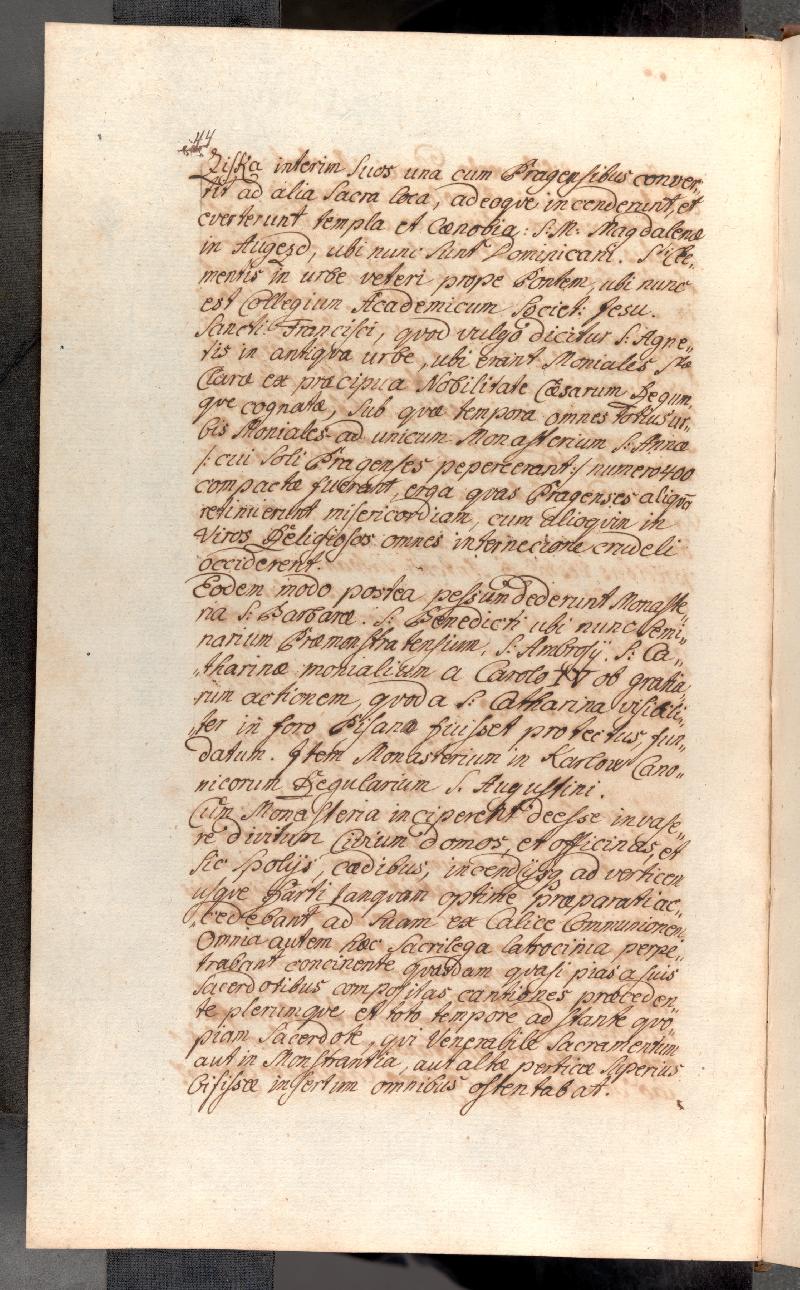 44
Ziska interim Suos una cum Pragensibus conver„
tit ad alia Sacra loca, adeoqve incenderunt, et
everterunt templa et Cœnobia: S: M: Magdalenæ
in Augezd, ubi nunc sunt Dominicani. Sti Cle„
mentis in urbe veteri prope Pontem, ubi nunc
est Collegium Academicum Societ: Jesu.
Sancti Francisci, quod vulgo dicitur S: Agne„
tis in antiqva urbe, ubi erant Moniales Stæ
Claræ ex præcipua Nobilitate Cæsarum Regum„
qve cognatæ, sub quæ tempora omnes totius ur„
bis Moniales ad unicum Monasterium S: Annæ
/: cui soli Pragenses pepercerant :/ numero 400
compactæ fuerant, erga quas Pragenses aliqvā
retinuerunt misericordiam, cum alioqvin in
Viros Religiosos omnes internecione crudeli
occiderent.
Eodem modo postea pessundederunt Monaste„
ria S: Barbaræ. S: Benedicti ubi nunc Semi„
narium Præmonstratensium, S: Ambrosij. S: Ca„
„tharinæ monialium a Carolo IV ob gratia„
rum actionem, quod a S: Catharina visibili„
„ter in foro Pisano fuisset protectus, fun„
datum. Item Monasterium in Karlow Cano„
nicorum Regularium S. Augustini.
Cum Monasteria inciperent deesse invase„
re divitum Civium domos, et officinas, et
sic spolijs, cædibus, incendijsq ad verticem
usqve Parti tanqvam optime præparati ac„
„cedebant ad suam ex Calice Communionem
Omnia autem hæc Sacrilega latrocinia perpe„
trabant concinente quasdam quasi pias a suis
Sacerdotibus compositas cantiones præceden„
te plerumqve et toto tempore adstante quo„
piam Sacerdote, qui Venerabile Sacramentum
aut in Monstrantia, aut altæ perticæ superius
bisissæ insertum omnibus ostentabat.